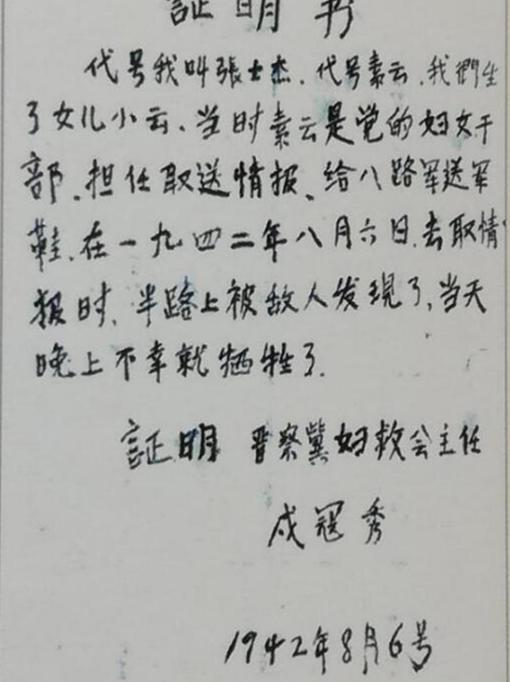 証明书
代号我叫張士杰、代号素云、我們生
了女儿小云、当时素云是党的妇女干
部、担任取送情报、给八路军送军
鞋、在一九四二年八月六日、去取情
报时、半路上被敌人发現了、当天
晚上不幸就牺牲了.
証明 晋察冀妇救会主任
成冠秀
1942年8月6号